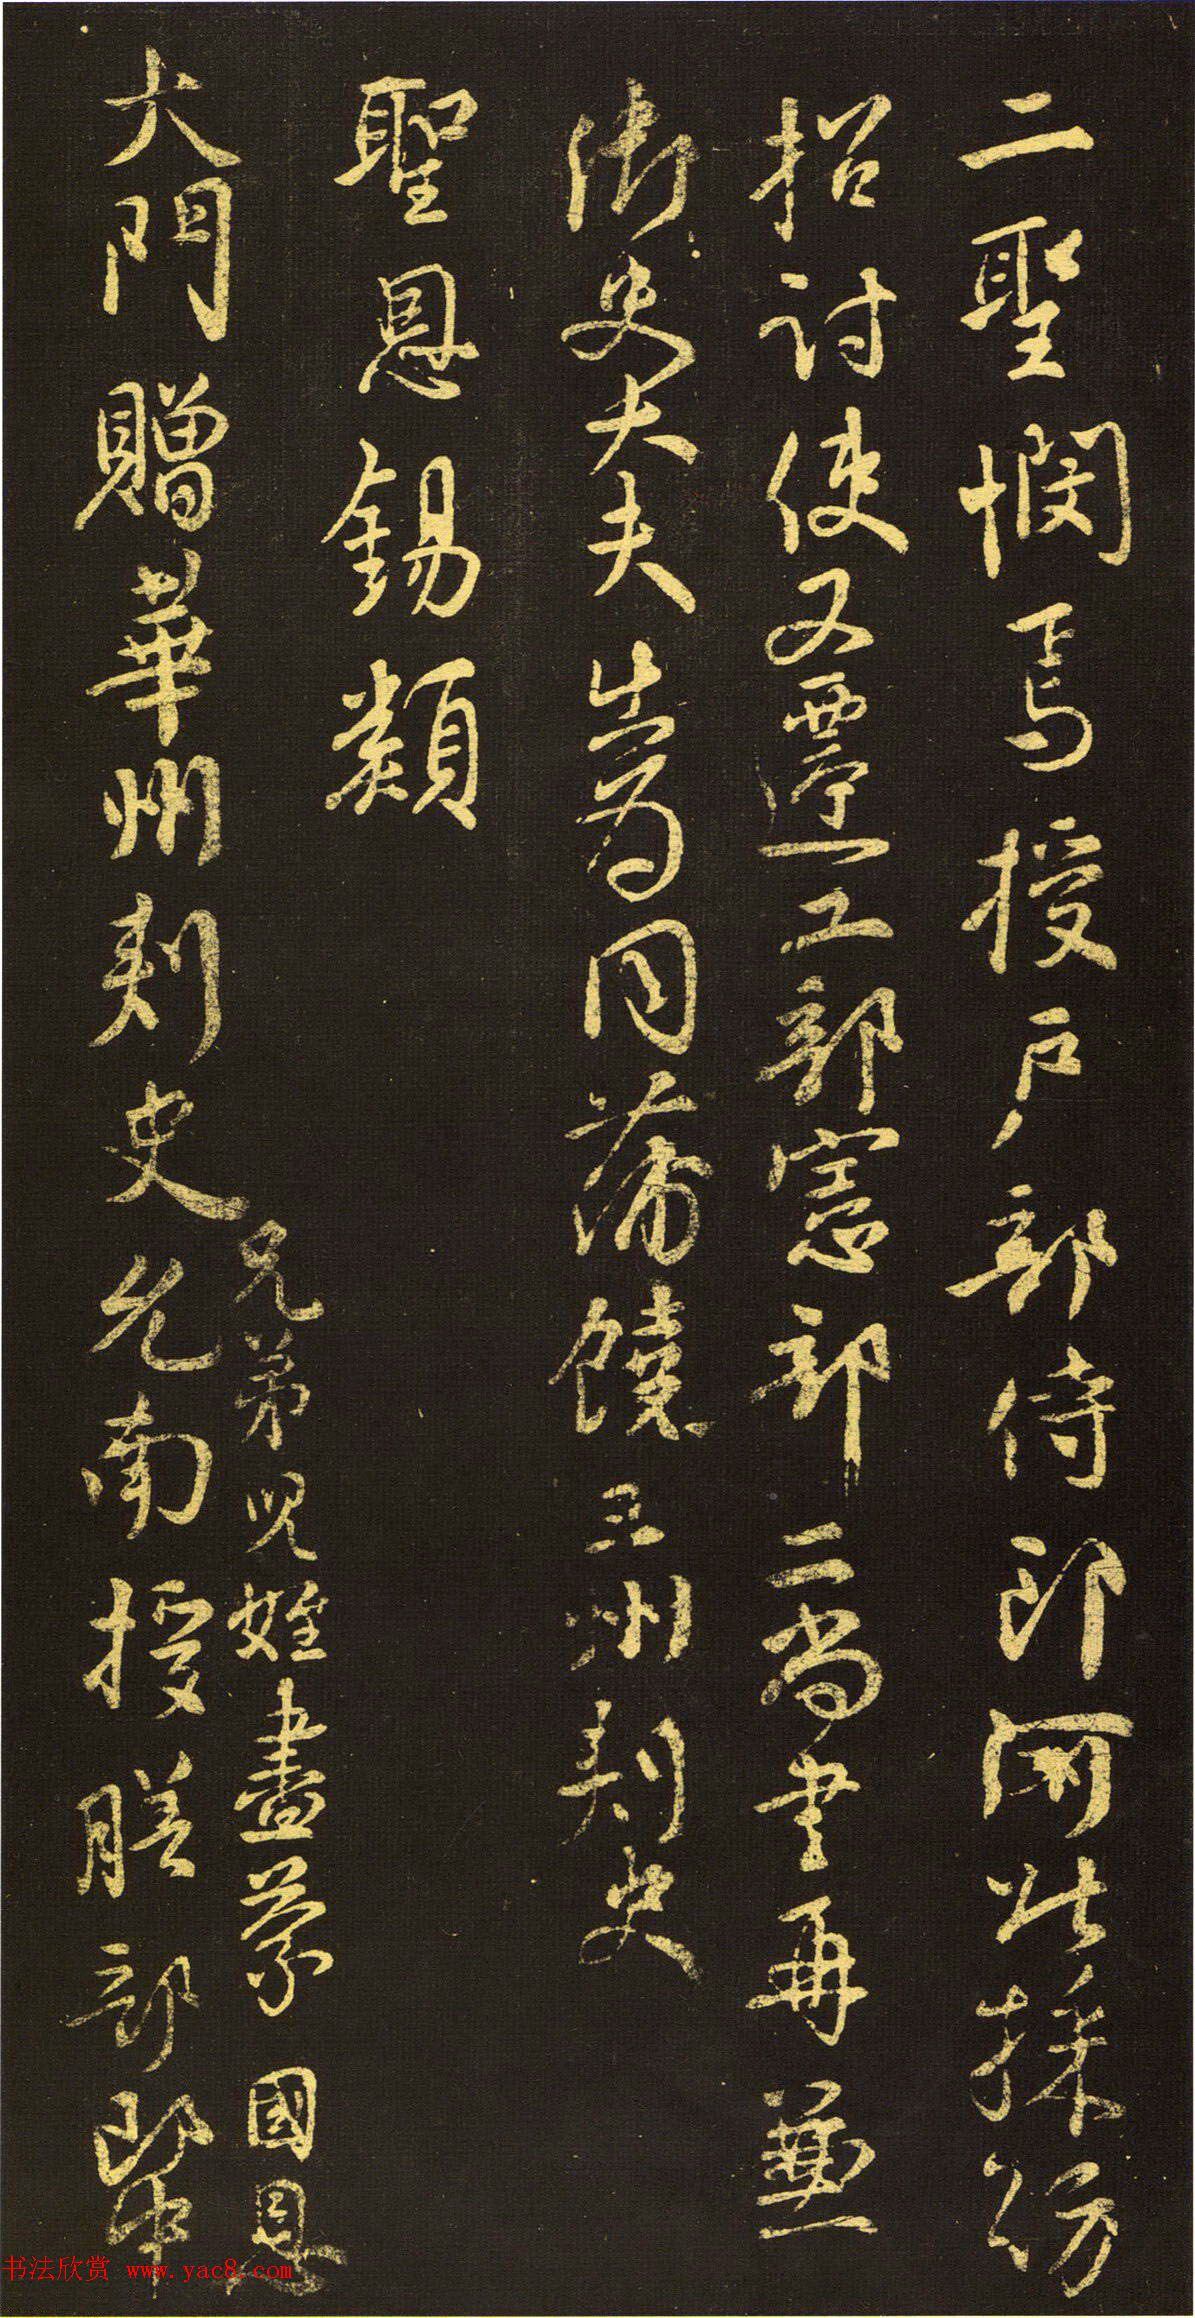 二聖憫焉授户部侍郎河北採訪
招討使又遷工部憲部二尚書再兼
御史大夫出為同蒲饒三州刺史
聖恩錫類
兄弟兒姪盡蒙國恩
大門贈華州刺史允南授膳部郎中
书法欣赏 www.yac8.com